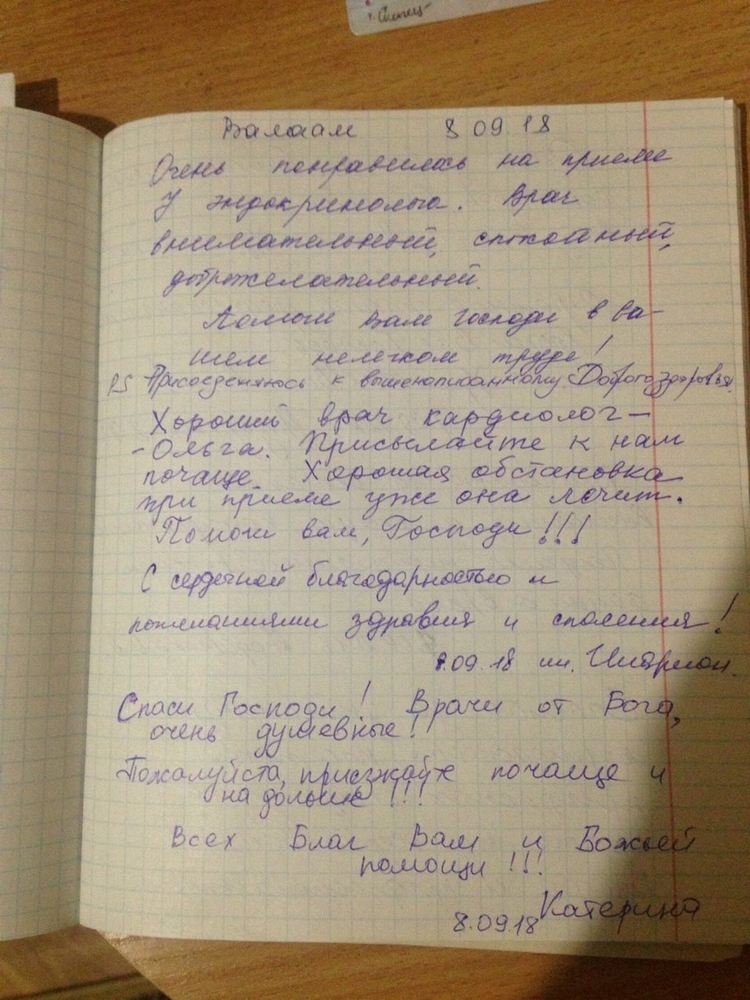 Валаам 8.09.18
Очень понравилось на приеме
у эндокринолога. Врач
внимательный, спокойный,
доброжелательный.
Помоги Вам Господи в ва-
шем нелегком труде!
PS Присоединяюсь к вышенаписанному. Доброго здоровья.
Хороший врач кардиолог -
- Ольга. Присылайте к нам
почаще. Хорошая обстановка
при приеме уже она лечит.
Помоги вам, Господи!!!
С сердечной благодарностью и
пожеланиями здравия и спасения!
8.09.18 ин. Иларион.
Спаси Господи! Врачи от Бога,
очень душевные!!
Пожалуйста, приезжайте почаще и
на дольше!!!
Всех Благ Вам и Божьей
помощи!!!
Катерина
8.09.18